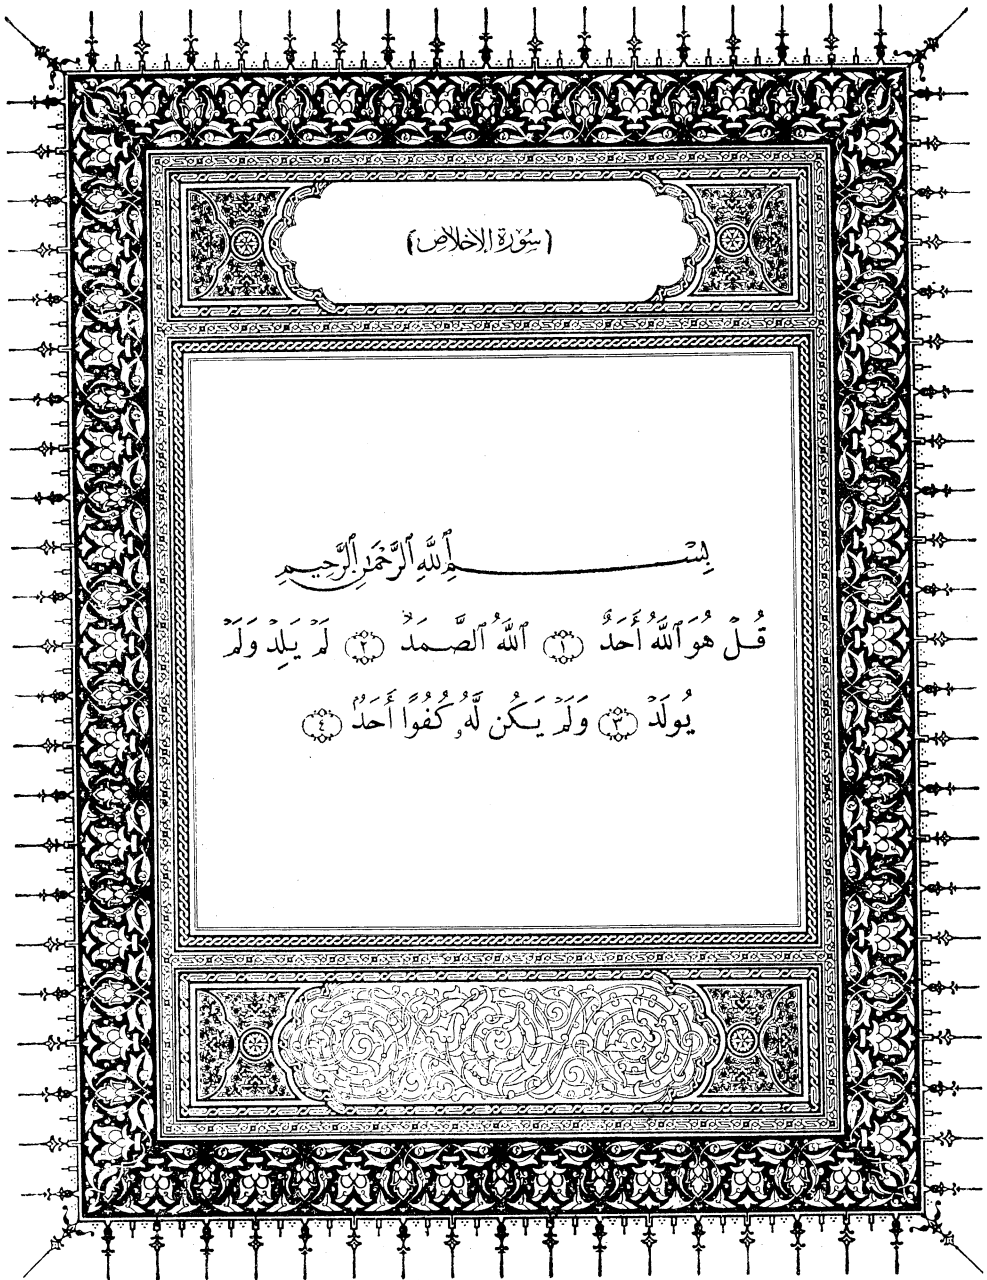 (سُورَة الإخلاص)
بِسْمِ ٱللَّهِ ٱلرَّحْمَٰنِ ٱلرَّحِيمِ
قُلْ هُوَ ٱللَّهُ أَحَدٌ ١ ٱللَّهُ ٱلصَّمَدُ ٢ لَمْ يَلِدْ وَلَمْ
يُولَدْ ٣ وَلَمْ يَكُن لَّهُۥ كُفُوًا أَحَدٌۢ ٤